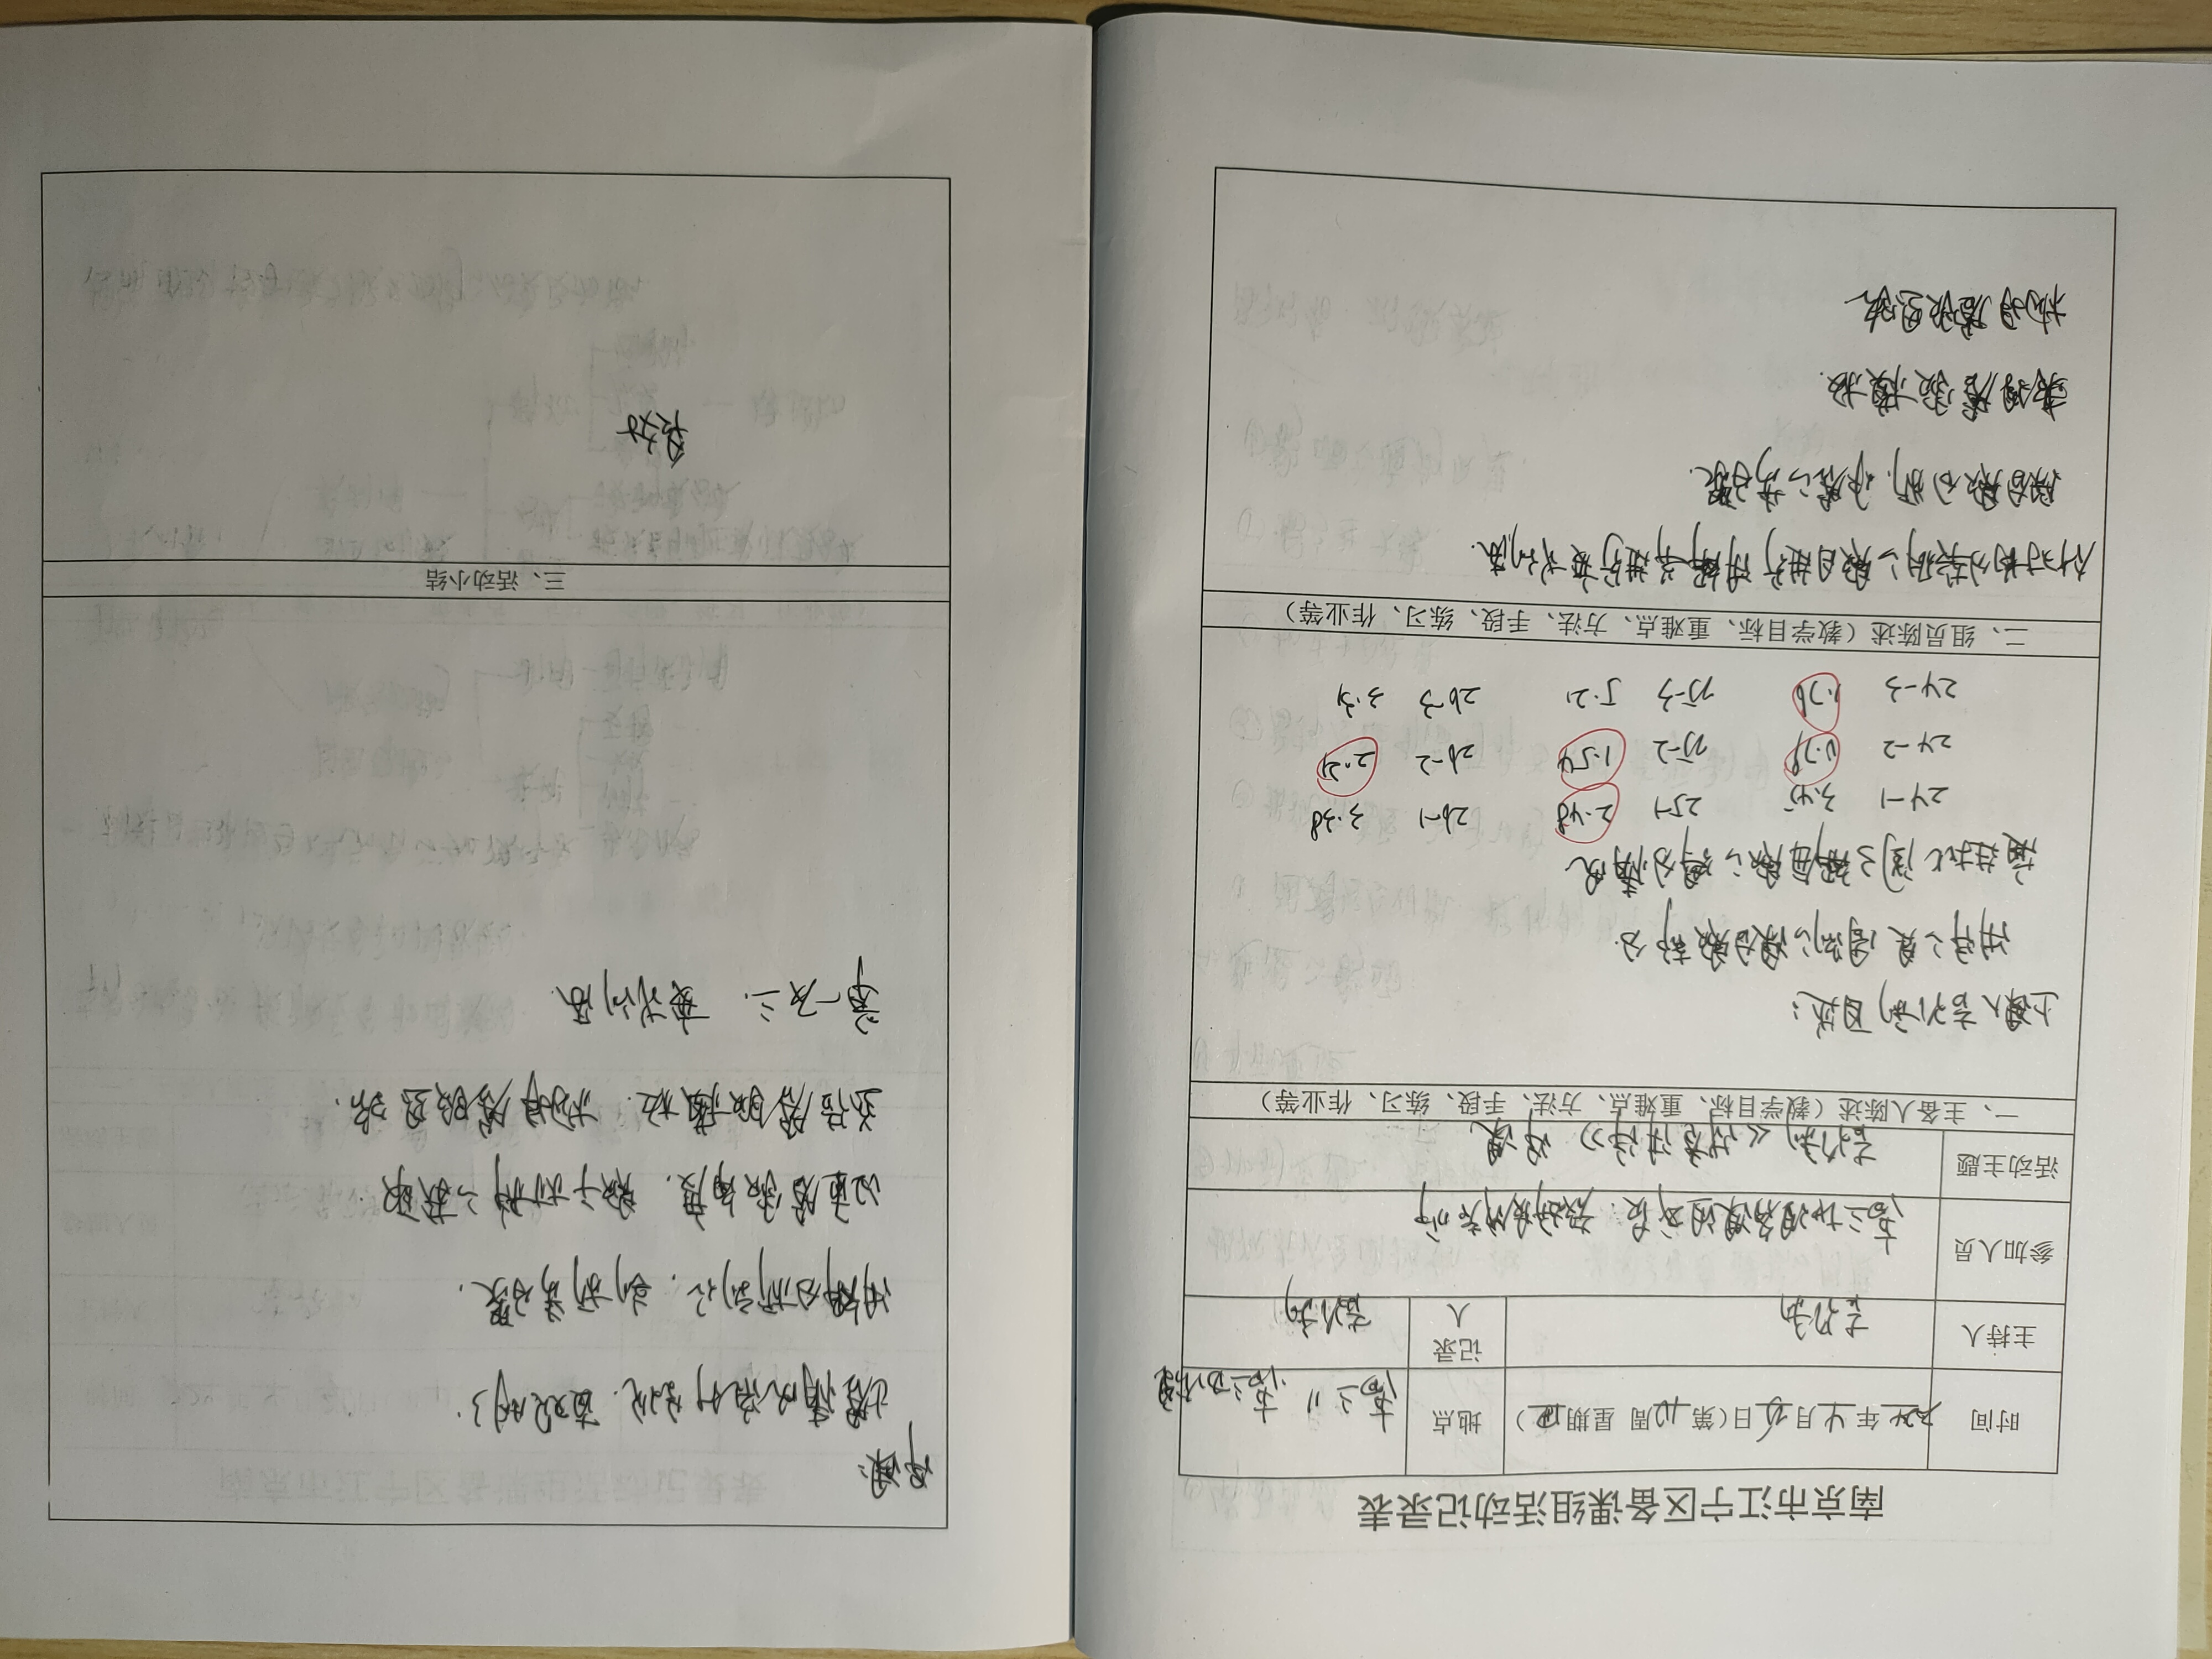 南京市江宁区备课组活动记录表
时间 2024年4月25日(第10周 星期四) 地点 高三11 高三办公室
主持人 吉 利 记录人 吉 利
参加人员 高三地理备课组成员、教研
活动主题 吉 利《试卷讲评》评课
一、主备人陈述(教学目标、重难点、方法、手段、练习、作业等)
上课人吉 利自述:
讲评的是周测的综合题部分.
通过批阅了解每题的得分情况
24-1 3.45 25-1 2.48 26-1 3.38
24-2 0.79 25-2 1.54 26-2 2.21
24-3 1.76 25-3 5.21 26-3 3.31
二、组员陈述(教学目标、重难点、方法、手段、练习、作业等)
针对均分较低的题目进行讲解并进行变式训练.
综合题分析、作答的步骤.
整理答题模板.
构建答题思路
评课:
答情况 呈现.直观明了.
讲解分析到位, 剖析步骤.
注重答题角度, 题干材料的获取.
答题模板. 构建答题思路.
举一反三. 变式训练.
三、活动小结
良好